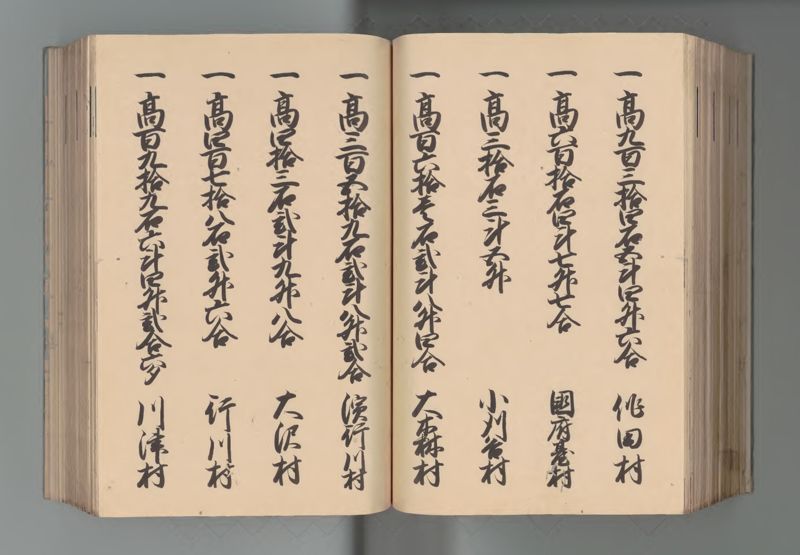 一 高九百三拾四石五斗四升六合 作田村
一 高六百拾石四斗七升七合 國府臺村
一 高三拾石三斗五升 小刈谷村
一 高百六拾壱石弐斗八升四合 大森村
一 高三百五拾九石弐斗八升弐合 濱行川村
一 高四拾三石弐斗九升八合 大沢村
一 高四百七拾八石弐升六合 行川村
一 高百九拾九石六斗四升弐合六夕 川津村